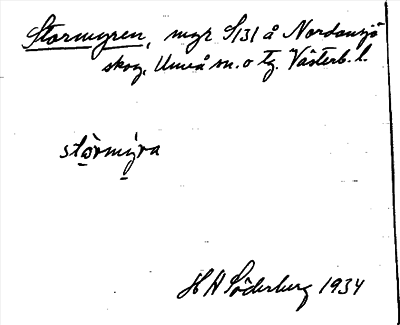 Stormyren, myr S131 å Nordansjö
skog, Umeå sn. o tg. Västerb. l.
stormyra
H A Söderberg 1934